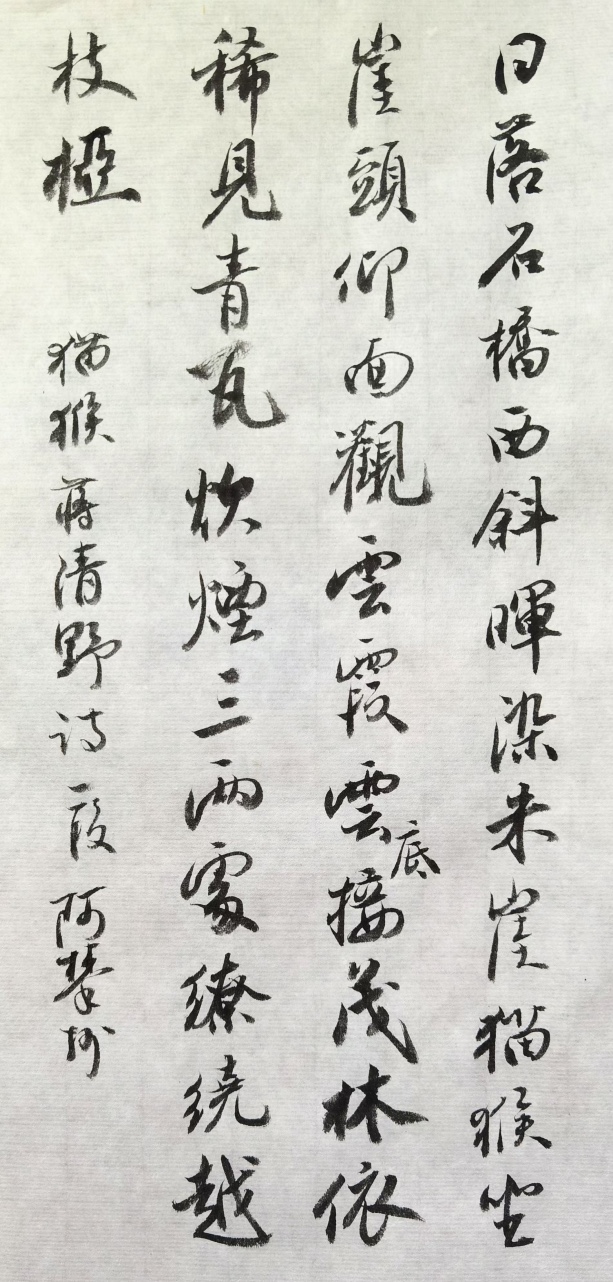 日落石橋西斜暉染朱崖猫猴坐
崖頭仰面觀雲霞雲底接茂林依
稀見青瓦炊煙三兩處繚繞越
枝椏
猫猴蔣清野诗一段阿攀書